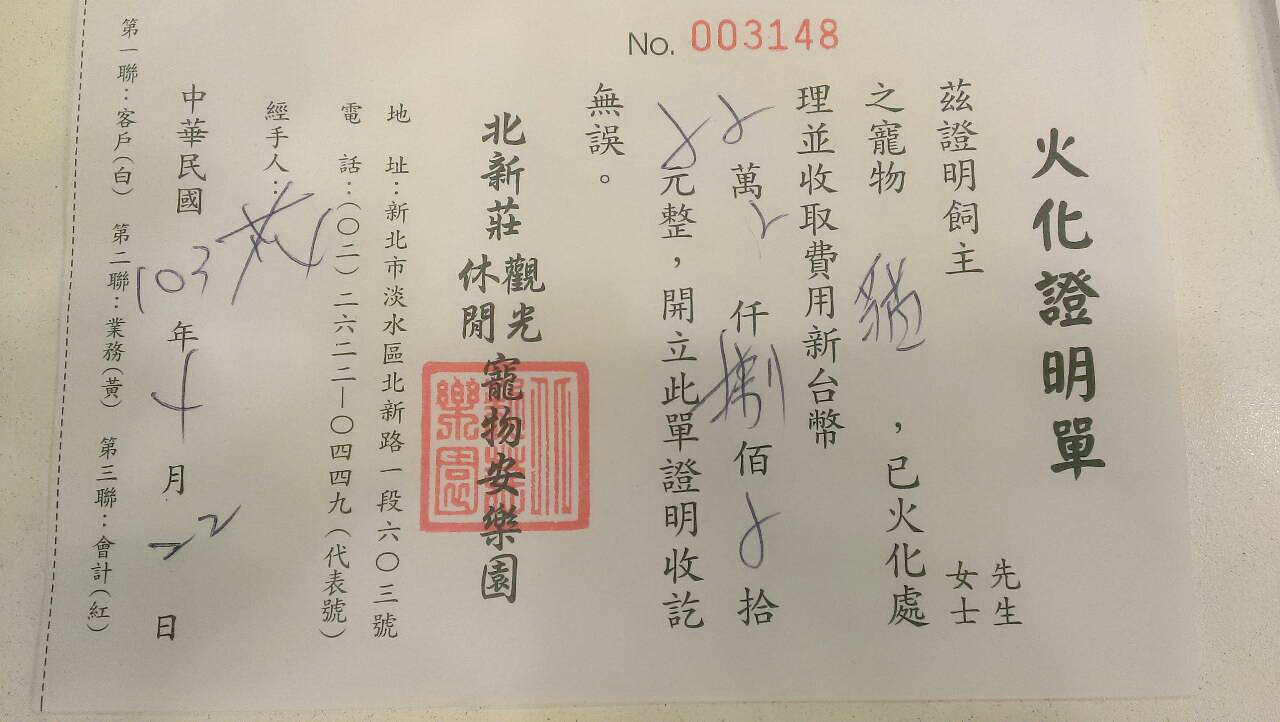 No. 003148
火化證明單
茲證明飼主 先生
女士
之寵物 貓 ,已火化處
理並收取費用新台幣
萬 仟 捌佰 拾
元整,開立此單證明收訖
無誤。
北新莊 觀光
休閒 寵物安樂園
地 址:新北市淡水區北新路一段六○三號
電 話:(○二)二六二二—○四四九(代表號)
經手人:
中華民國 103 年 十 月 二 日
第一聯:客戶(白) 第二聯:業務(黃) 第三聯:會計(紅)